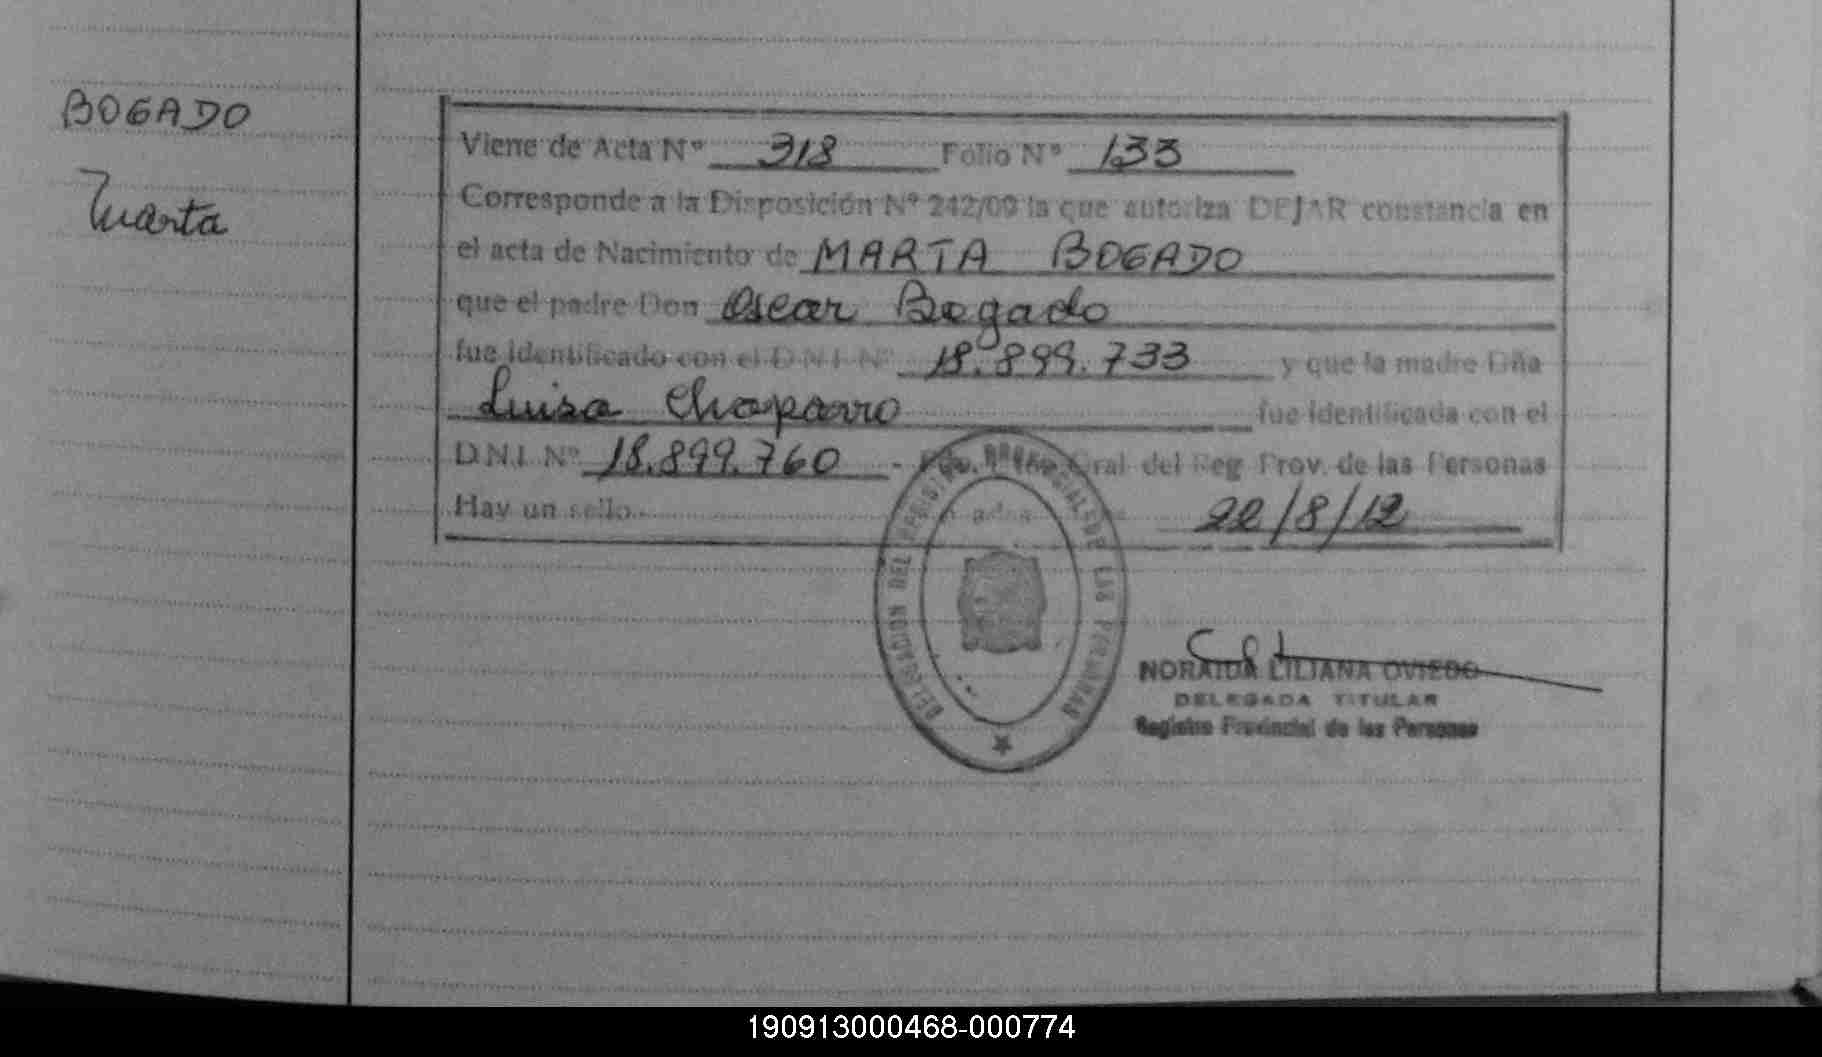 BOGADO
Marta
Viene de Acta Nº 318 Folio Nº 133
Corresponde a la Disposición Nº 242/09 la que autoriza DEJAR constancia en
el acta de Nacimiento de MARTA BOGADO
que el padre Don Oscar Bogado
fue identificado con el D.N.I. Nº 18.899.733 y que la madre Dña
Luisa Chaparro fue identificada con el
D.N.I. Nº 18.899.760 - Gral del Reg Prov. de las Personas
Hay un sello 22/8/12
DELEGACION DEL REGISTRO PROVINCIAL DE LAS PERSONAS
NORAIDA LILIANA OVIEDO
DELEGADA TITULAR
Registro Provincial de las Personas
190913000468-000774